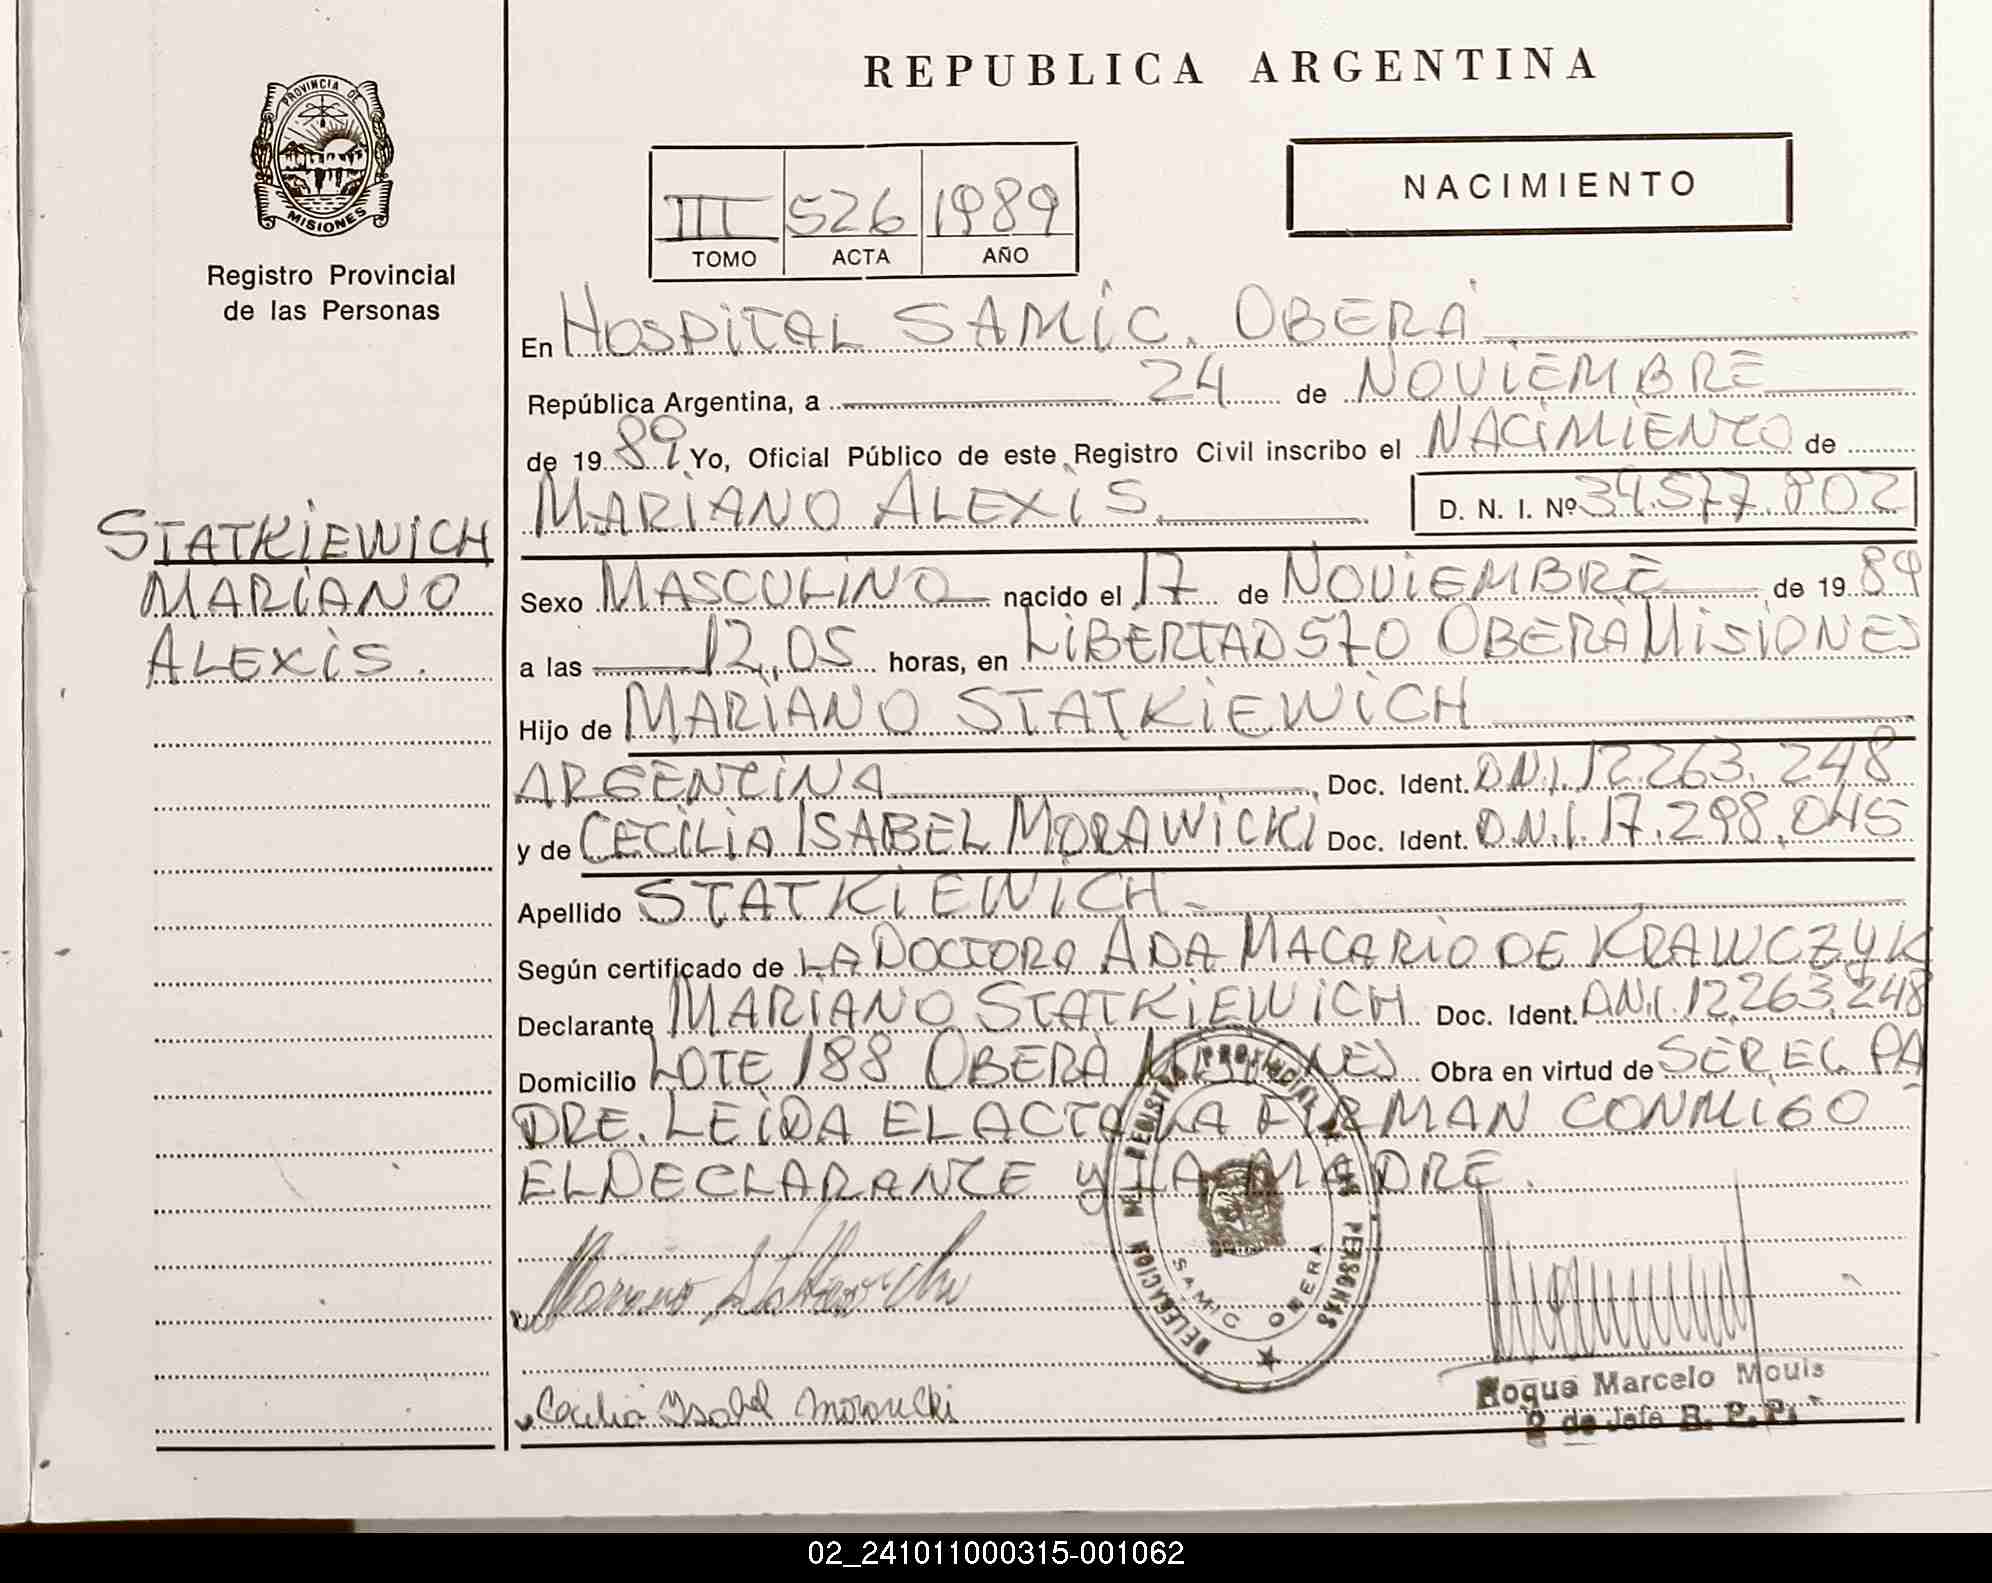 REPUBLICA ARGENTINA
PROVINCIA DE
MISIONES
Registro Provincial
de las Personas
III 526 1989
TOMO ACTA AÑO
NACIMIENTO
En HOSPITAL SAMIC. OBERÁ
República Argentina, a 24 de NOVIEMBRE
de 1989 Yo, Oficial Público de este Registro Civil inscribo el NACIMIENTO de
MARIANO ALEXIS D. N. I. Nº 34.577.802
STATKIEWICH
MARIANO
ALEXIS.
Sexo MASCULINO nacido el 17 de NOVIEMBRE de 1989
a las 12,05 horas, en LIBERTAD 570 OBERÁ MISIONES
Hijo de MARIANO STATKIEWICH
ARGENTINA Doc. Ident. D.N.I. 12.263.248
y de CECILIA ISABEL MORAWICKI Doc. Ident. D.N.I. 17.298.045
Apellido STATKIEWICH
Según certificado de LA DOCTORA ADA MACARIO DE KRAWCZYK
Declarante MARIANO STATKIEWICH Doc. Ident. D.N.I. 12.263.248
Domicilio LOTE 188 OBERÁ MISIONES Obra en virtud de SER EL PA
DRE. LEIDA EL ACTA LA FIRMAN CONMIGO
EL DECLARANTE Y LA MADRE.
DELEGACION DEL REGISTRO PROVINCIAL DE LAS PERSONAS
SAMIC OBERA
Mariano Statkiewich
Cecilia Isabel Morawicki
Roque Marcelo Mouis
2 de Jefe R. P. P.
02_241011000315-001062